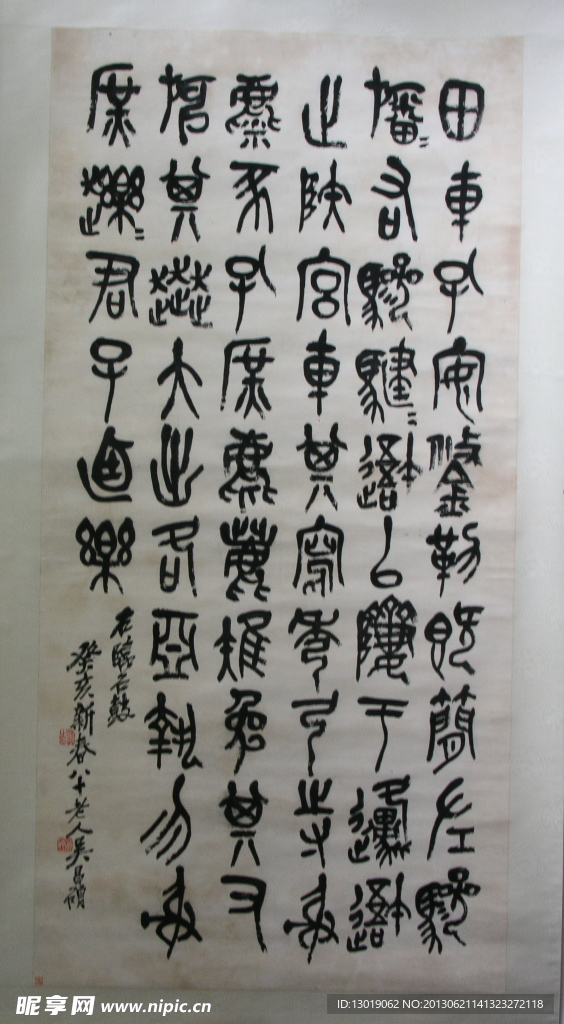 田車孔安鋚勒既簡左驂
旛=右驂騝=邍以隮于邍
止陝宮車其寫秀弓寺射
麋豕孔庶麀鹿雉兔其又
其大出各亞執勿射
庶君子逌樂
右臨石鼓
癸亥新春八十老人吳昌碩
昵享网 www.nipic.cn
ID:13019062 NO:20130621141323272118